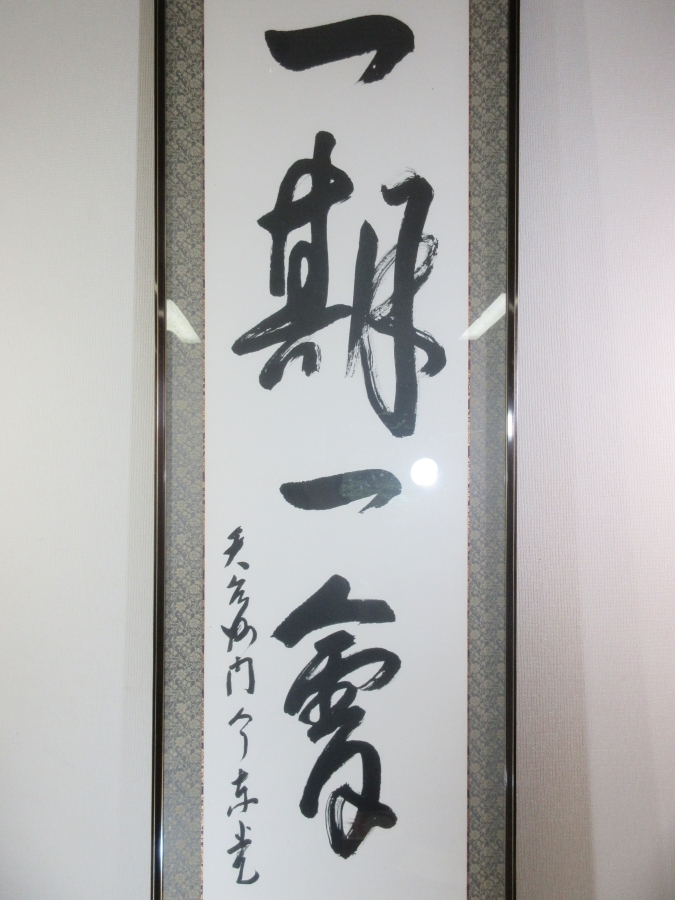 一期一會
天台沙门今东光